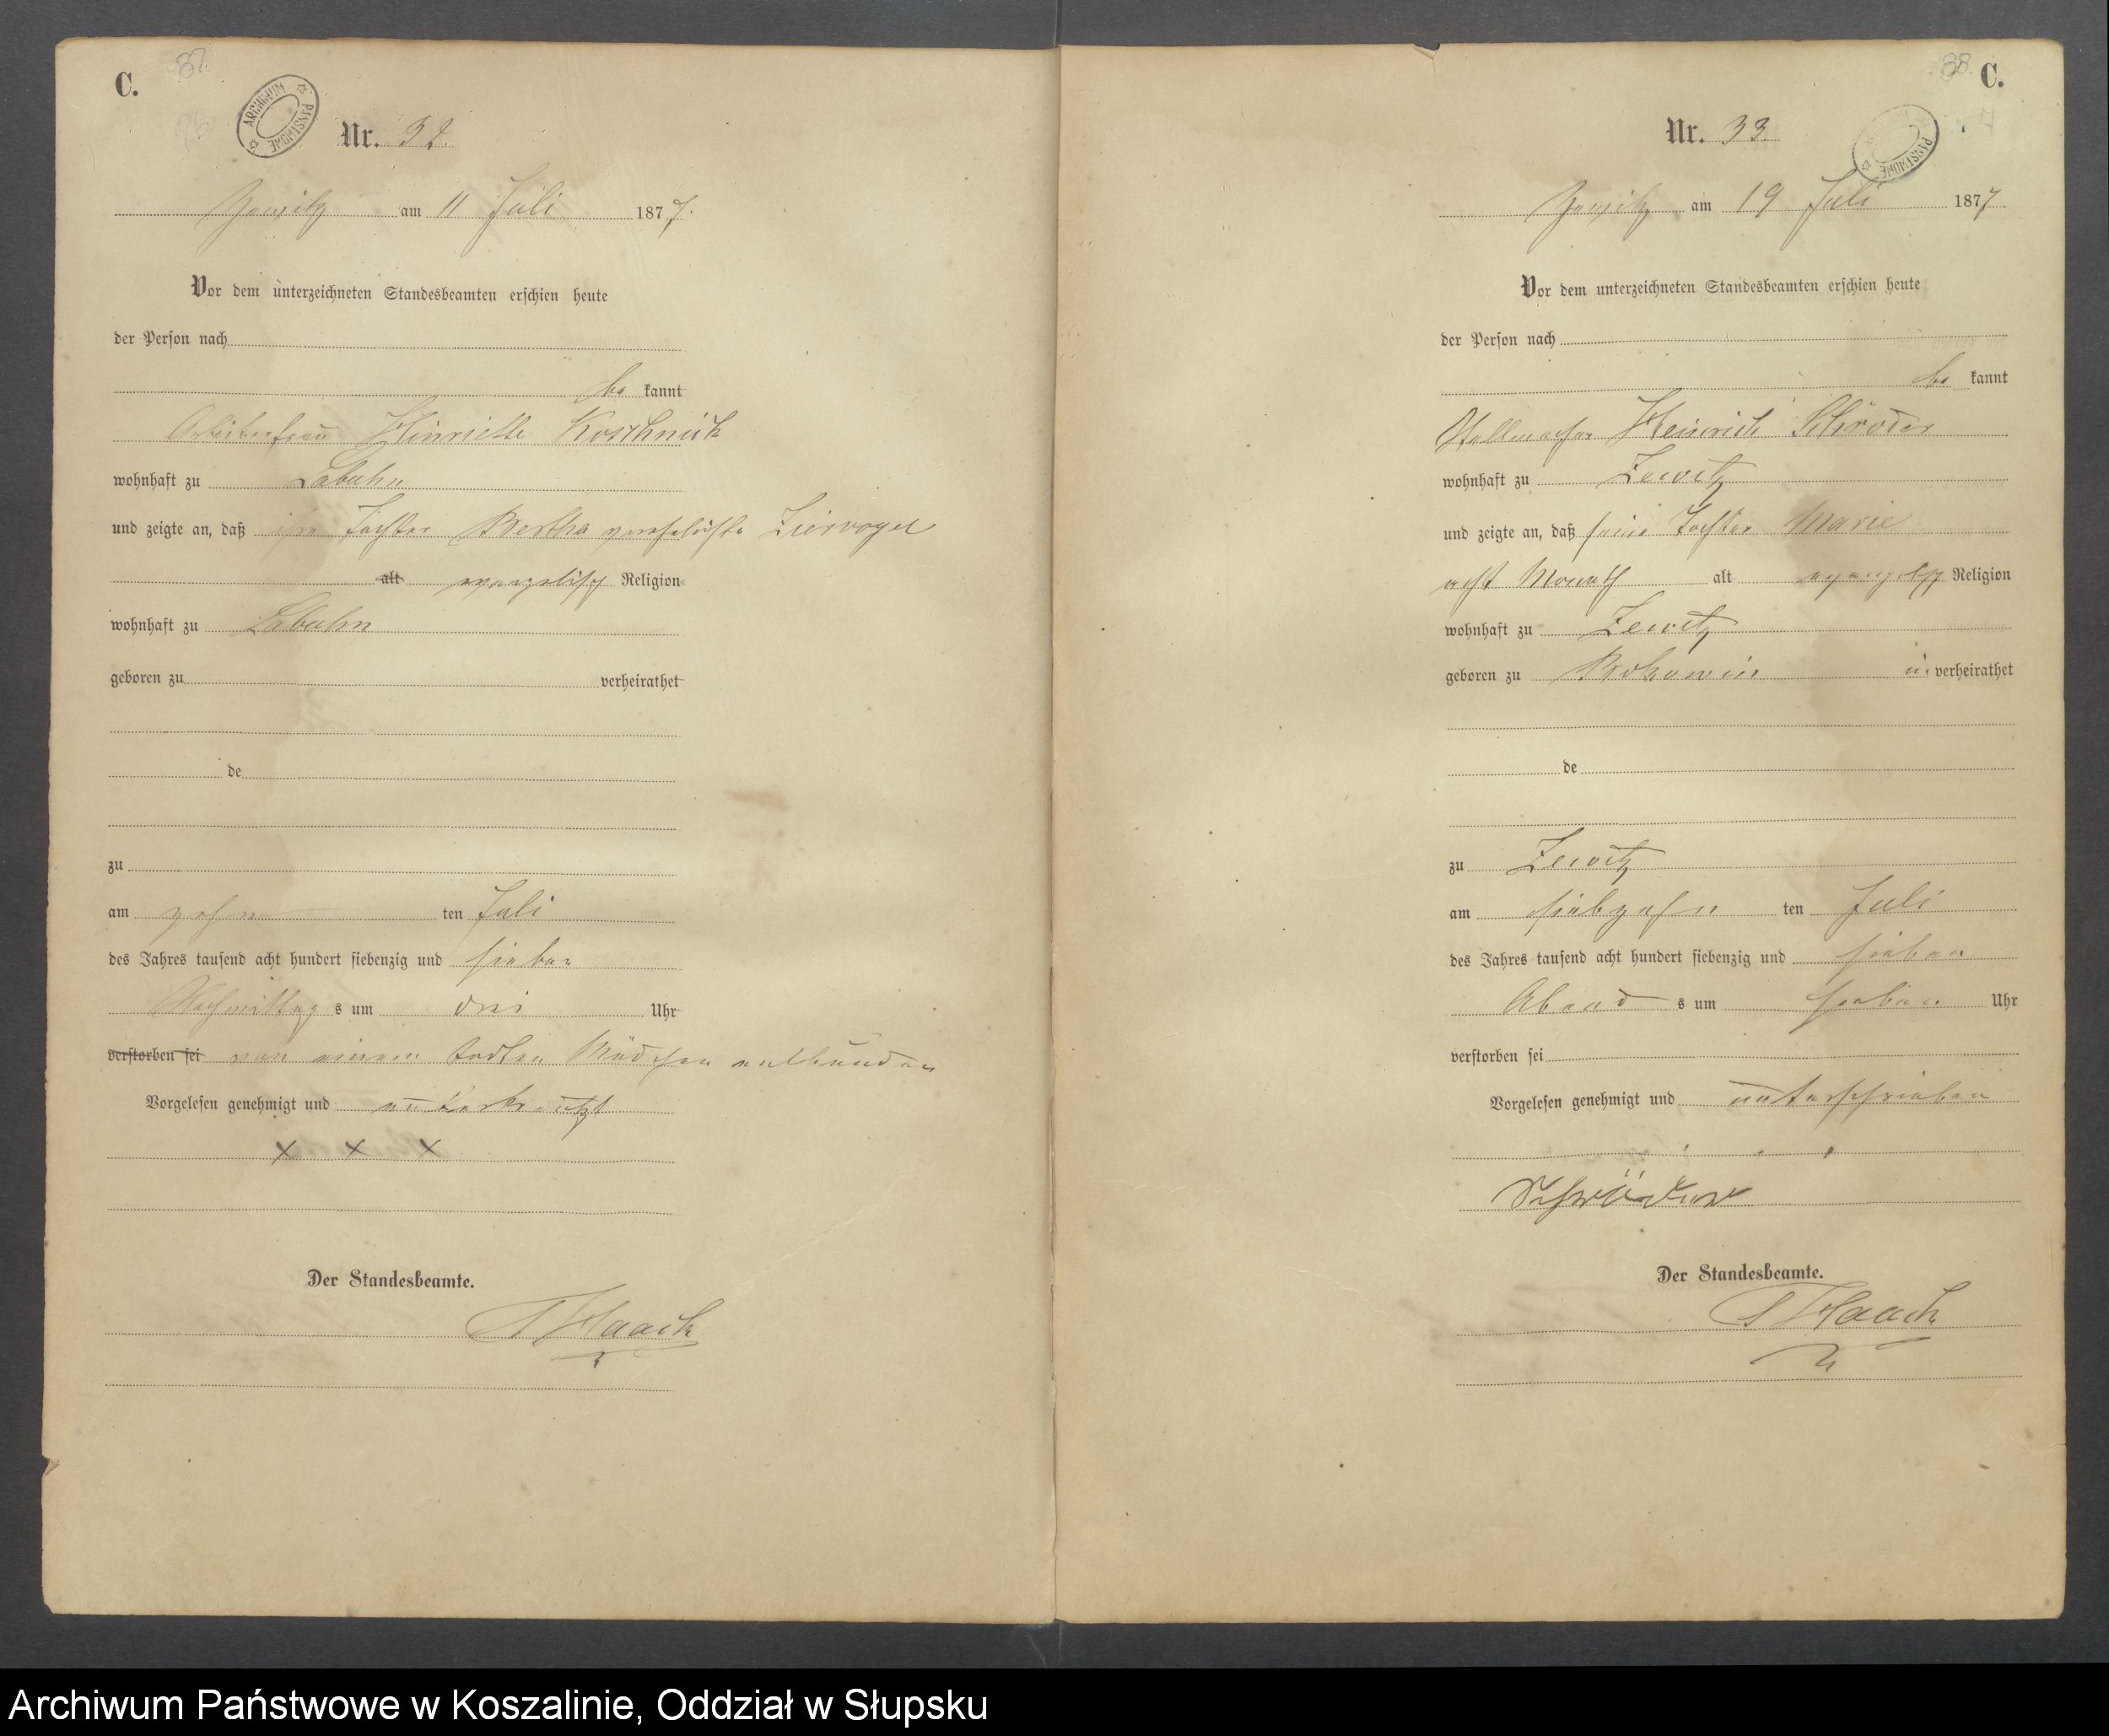 C.
87.
ARCHIWUM PAŃSTWOWE
Nr. 32.
Zewitz am 11 Juli 1877.
Vor dem unterzeichneten Standesbeamten erschien heute
der Person nach
be kannt
Arbeiterfrau Henriette Koschnick
wohnhaft zu Labuhn
und zeigte an, daß ihre Tochter Bertha verehelichte Ziervogel
alt evangelisch Religion
wohnhaft zu Labuhn
geboren zu verheirathet
de
zu
am zehn ten Juli
des Jahres tausend acht hundert siebenzig und sieben
Nachmittag s um drei Uhr
verstorben sei von einem todten Mädchen entbunden
Vorgelesen genehmigt und unterkreutzt
X X X
Der Standesbeamte.
Haack
88. C.
PAŃSTWOWE
Nr. 33
Zewitz am 19 Juli 1877
Vor dem unterzeichneten Standesbeamten erschien heute
der Person nach
be kannt
Stellmacher Heinrich Schröder
wohnhaft zu Zewitz
und zeigte an, daß seine Tochter Marie
acht Monath alt evangelisch Religion
wohnhaft zu Zewitz
geboren zu un verheirathet
de
zu Zewitz
am siebzehn ten Juli
des Jahres tausend acht hundert siebenzig und sieben
Abend s um sieben Uhr
verstorben sei
Vorgelesen genehmigt und unterschrieben
Schröder
Der Standesbeamte.
Haack
Archiwum Państwowe w Koszalinie, Oddział w Słupsku